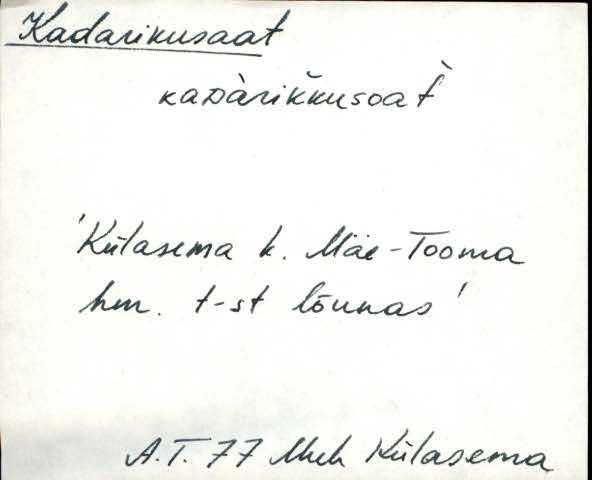 Kadarikusaat
kaᴅàrik̆kusoat̀
'Külasema k. Mäe-Tooma
hm. t-st lõunas'
A.T. 77 Muh Külasema